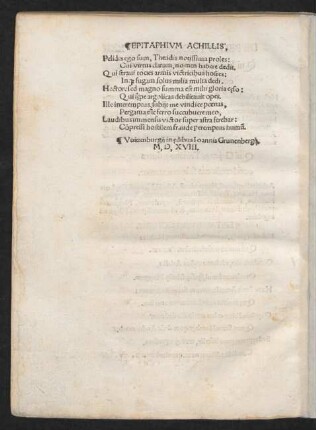 ¶EPITAPHIVM ACHILLIS.
Pelides ego sum, Thetidis notissima proles:
Cui virtus clarum nomen habere dedit.
Qui stravi toties armis victricibus hostes:
Inq; fugam solus milia multa dedi.
Hectore sed magno summa est mihi gloria cęso:
Qui sępe argolicas debilitavit opes.
Ille interemptus, subijt me vindice pœnas,
Pergama tūc ferro succubuere meo,
Laudibus immensis victor super astra ferebar:
Cū pressi hostilem fraude peremptus humū.
¶ Vuittenburgii in ędibus Ioannis Grunenbergii.
M, D, XVIII,